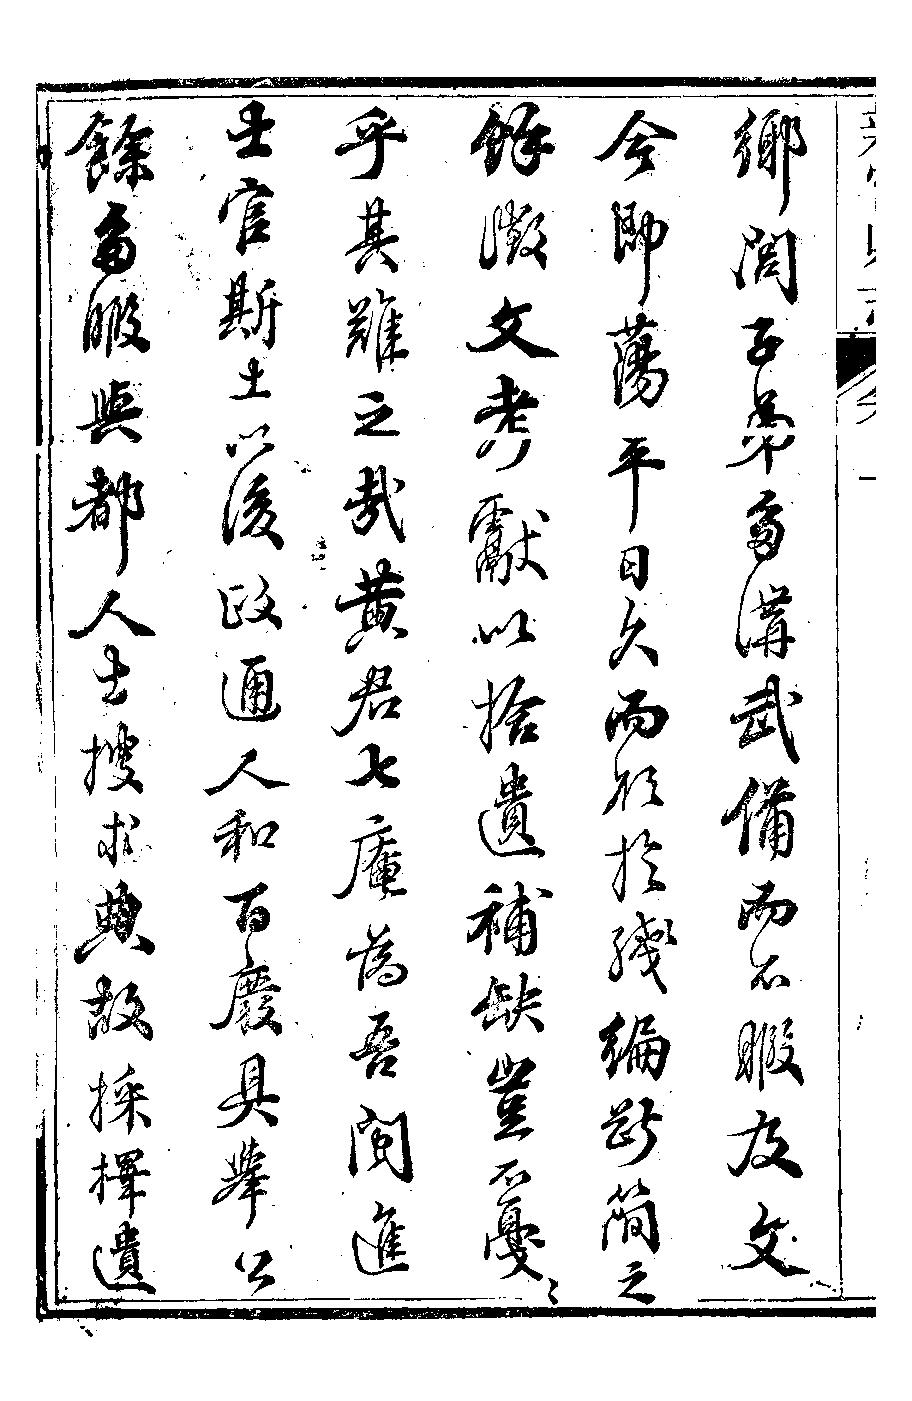 鄉閭子弟多講武備而不暇及文
今即蕩平日久而欲於殘編斷簡之
餘徵文考獻以拾遺補缺豈不戞〻
乎其難之哉黃君七庵為吾閩進
士官斯土以後政通人和百廢具舉公
餘多暇與都人士搜求典故採擇遺